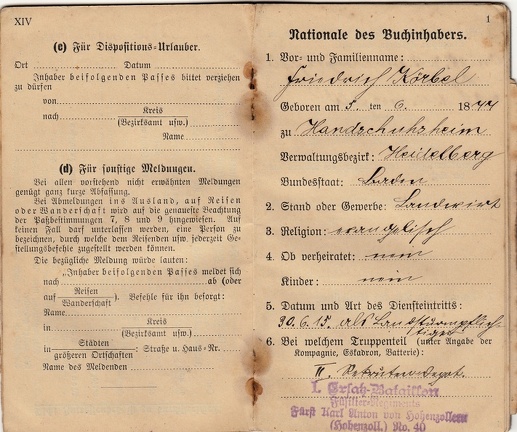 XIV
(c) Für Dispositions-Urlauber.
Ort Datum
Inhaber beifolgenden Passes bittet verziehen
zu dürfen
von
nach Kreis
(Bezirksamt usw.)
Name
(d) Für sonstige Meldungen.
Bei allen vorstehend nicht erwähnten Meldungen
genügt ganz kurze Abfassung.
Bei Abmeldungen ins Ausland, auf Reisen
oder Wanderschaft wird auf die genaueste Beachtung
der Paßbestimmungen 7, 8 und 9 hingewiesen. Auf
keinen Fall darf unterlassen werden, eine Person zu
bezeichnen, durch welche dem Reisenden usw. jederzeit Ge-
stellungsbefehle zugestellt werden können.
Die bezügliche Meldung würde lauten:
„Inhaber beifolgenden Passes meldet sich
nach ab (oder
auf Reisen
Wanderschaft ). Befehle für ihn besorgt:
Name
in Kreis
(Bezirksamt usw.)
in Städten
größeren Ortschaften Straße u. Haus-Nr.
Name des Meldenden
1
Nationale des Buchinhabers.
1. Vor- und Familienname:
Friedrich Körbel
Geboren am 5 ten 6. 1877
zu Handschuhsheim
Verwaltungsbezirk: Heidelberg
Bundesstaat: Baden
2. Stand oder Gewerbe: Landwirt
3. Religion: evangelisch
4. Ob verheiratet: nein
Kinder: nein
5. Datum und Art des Diensteintritts:
30.6.15. als Landsturmpflich-
tiger
6. Bei welchem Truppenteil (unter Angabe der
Kompagnie, Eskadron, Batterie):
II. Rekrutendepot.
I. Ersatz-Bataillon
Fürst Karl Anton von Hohenzollern
(Hohenzoll.) No. 40